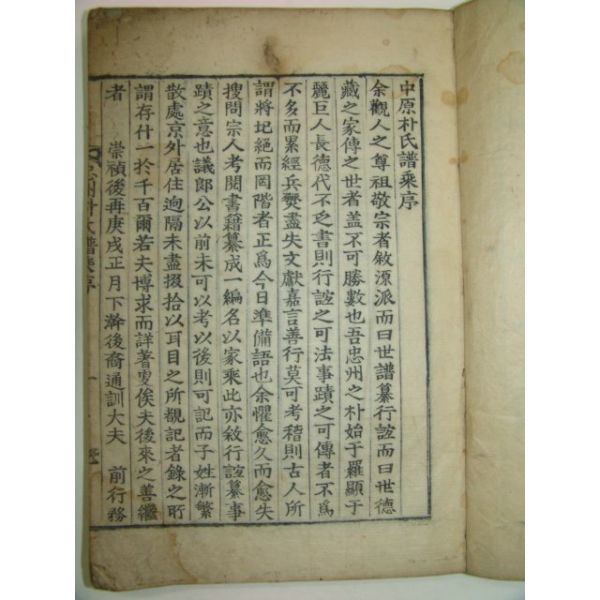 中原朴氏譜乘序
余觀人之尊祖敬宗者敘源派而曰世譜纂行誼而曰世德
藏之家傳之世者盖不可勝數也吾忠州之朴始于羅顯于
麗巨人長德代不乏書則行誼之可法事蹟之可傳者不爲
不多而累經兵燹盡失文獻嘉言善行莫可考稽則古人所
謂將圮絶而罔階者正爲今日準備語也余懼愈久而愈失
搜問宗人考閱書籍纂成一編名以家乘此亦敘行誼纂事
蹟之意也議郎公以前未可以考以後則可記而子姓漸繁
散處京外居住逈隔未盡掇拾以耳目之所覩記者錄之所
謂存什一於千百爾若夫博求而詳著爰俟夫後來之善繼
者 崇禎後再庚戌正月下澣後裔通訓大夫 前行務
忠州朴氏譜乘序 一